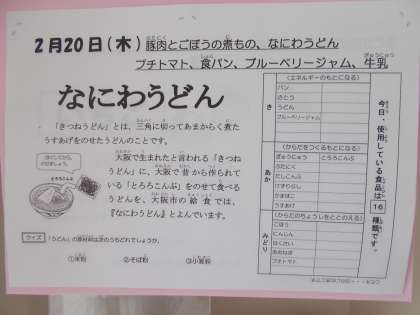 2月20日(木) 豚肉とごぼうの煮もの、なにわうどん
プチトマト、食パン、ブルーベリージャム、牛乳
なにわうどん
「きつねうどん」とは、三角に切ってあまからく煮た
うすあげをのせたうどんのことです。
大阪で生まれたと言われる「きつね
うどん」に、大阪で昔から作られて
いる「とろろこんぶ」をのせて食べる
うどんを、大阪市の給食では、
『なにわうどん』とよんでいます。
クイズ
「うどん」の原材料は次のうちどれでしょうか。
①米粉 ②そば粉 ③小麦粉
き
(エネルギーのもとになる)
パン
さとう
うどん
ブルーベリージャム
あか
(からだをつくるもとになる)
ぎゅうにゅう とろろこんぶ
ぶたにく
だしこんぶ
けずりぶし
かまぼこ
うすあげ
みどり
(からだのちょうしをととのえる)
ごぼう
にんじん
はくさい
あおねぎ
プチトマト
今日、使用している食品は
16
種類です。